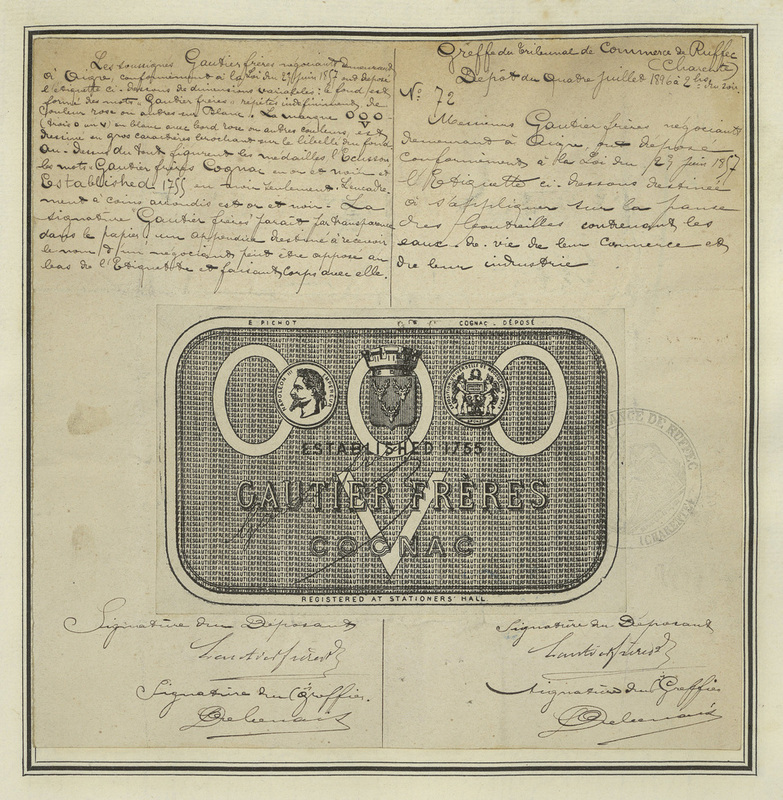 Les soussignés Gautier frères négociants demeurant
à Aigre, conformément à la loi du 23 juin 1857 ont déposé
l'étiquette ci-dessous de dimensions variables: le fond est
formé des mots Gautier frères répétés indéfiniment de
couleur rose ou autres sur Blanc. La marque OOO
V
(trois O un V) en blanc avec bord rose ou autres couleurs, est
dessiné en gros caractères brochant sur le libellé du fond
Au-dessus du tout figurent les médailles l'Ecusson
les mots Gautier frères Cognac en or et noir et
Established 1755 en noir seulement. L'encadre-
ment à coins arrondis est or et noir. La
signature Gautier frères paraît par transparence
dans le papier; un appendice destiné à recevoir
le nom d'un négociant peut être apposé au
bas de l'Etiquette et faisant corps avec elle.
Greffe du Tribunal de Commerce de Ruffec
(Charente)
Dépôt du Quatre Juillet 1896 à 2 hrs du soir
N° 72
Messieurs Gautier frères, négociants
demeurant à Aigre, ont déposé
conformément à la Loi du 23 juin 1857
l'Etiquette ci-dessous destinée
à s'appliquer sur la panse
des bouteilles contenant les
eaux-de-vie de leur commerce et
de leur industrie.
E. PICHOT
COGNAC - DÉPOSÉ
OOO
NAPOLEON III EMPEREUR
ESTABLISHED 1755
GAUTIER FRÈRES
V
COGNAC
REGISTERED AT STATIONERS' HALL.
DE RUFFEC
(CHARENTE)
Signature du Déposant
Gautier frères
Signature du Greffier.
Signature du Déposant
Gautier frères
Signature du Greffier